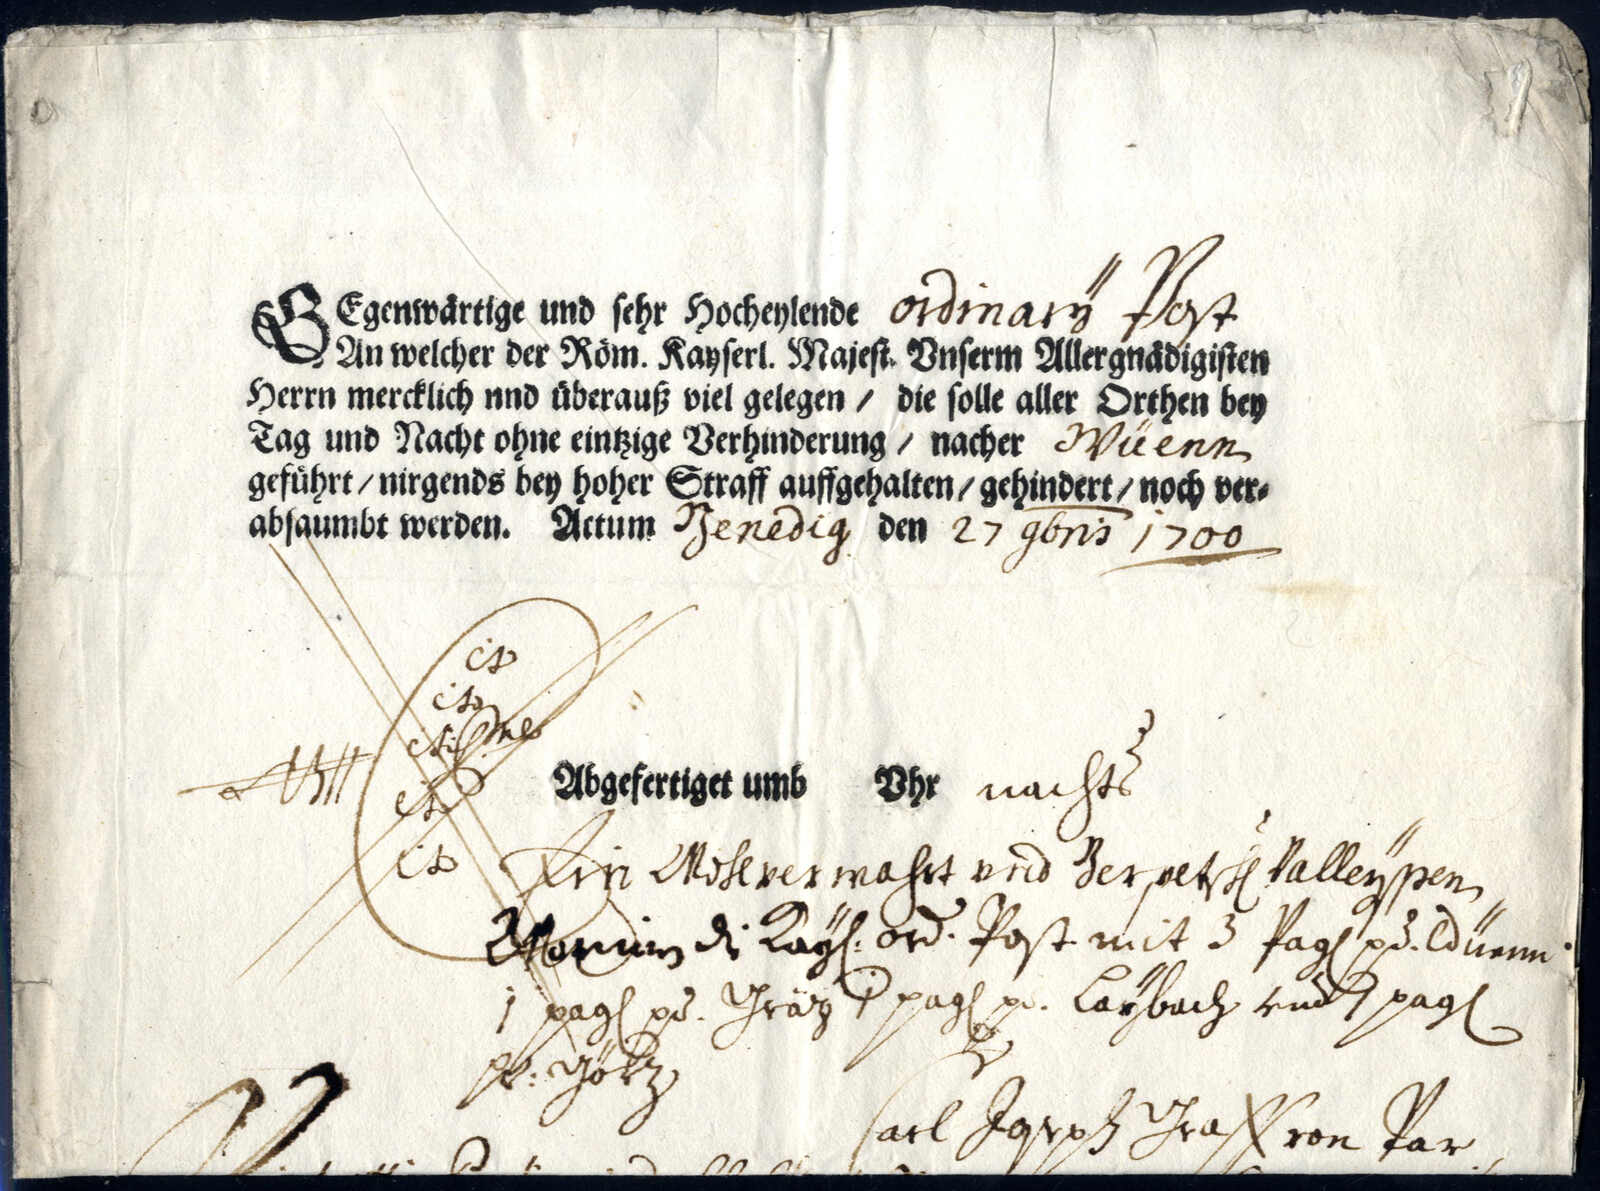 GEgenwärtige und sehr Hocheylende ordinarÿ Post
An welcher der Röm. Kayserl. Majest. Vnserm Allergnädigisten
Herrn mercklich nnd überauß viel gelegen / die solle aller Orthen bey
Tag und Nacht ohne eintzige Verhinderung / nacher Wüenn
geführt / nirgends bey hoher Straff auffgehalten / gehindert / noch ver-
absaumbt werden. Actum Venedig den 27 9bris 1700
cito
cito
cito
cito
cito
Abgefertiget umb Vhr nachts
Ein Wohlverwahrt vnd Valleyßen
Warin di Kayß: ord. Post mit 3 Pagl pr. Wüenn
1 pagl pr. Gräz 1 pagl pr. Laÿbach vnd 1 pagl
pr: Görtz
Carl Joseph Graff von Par